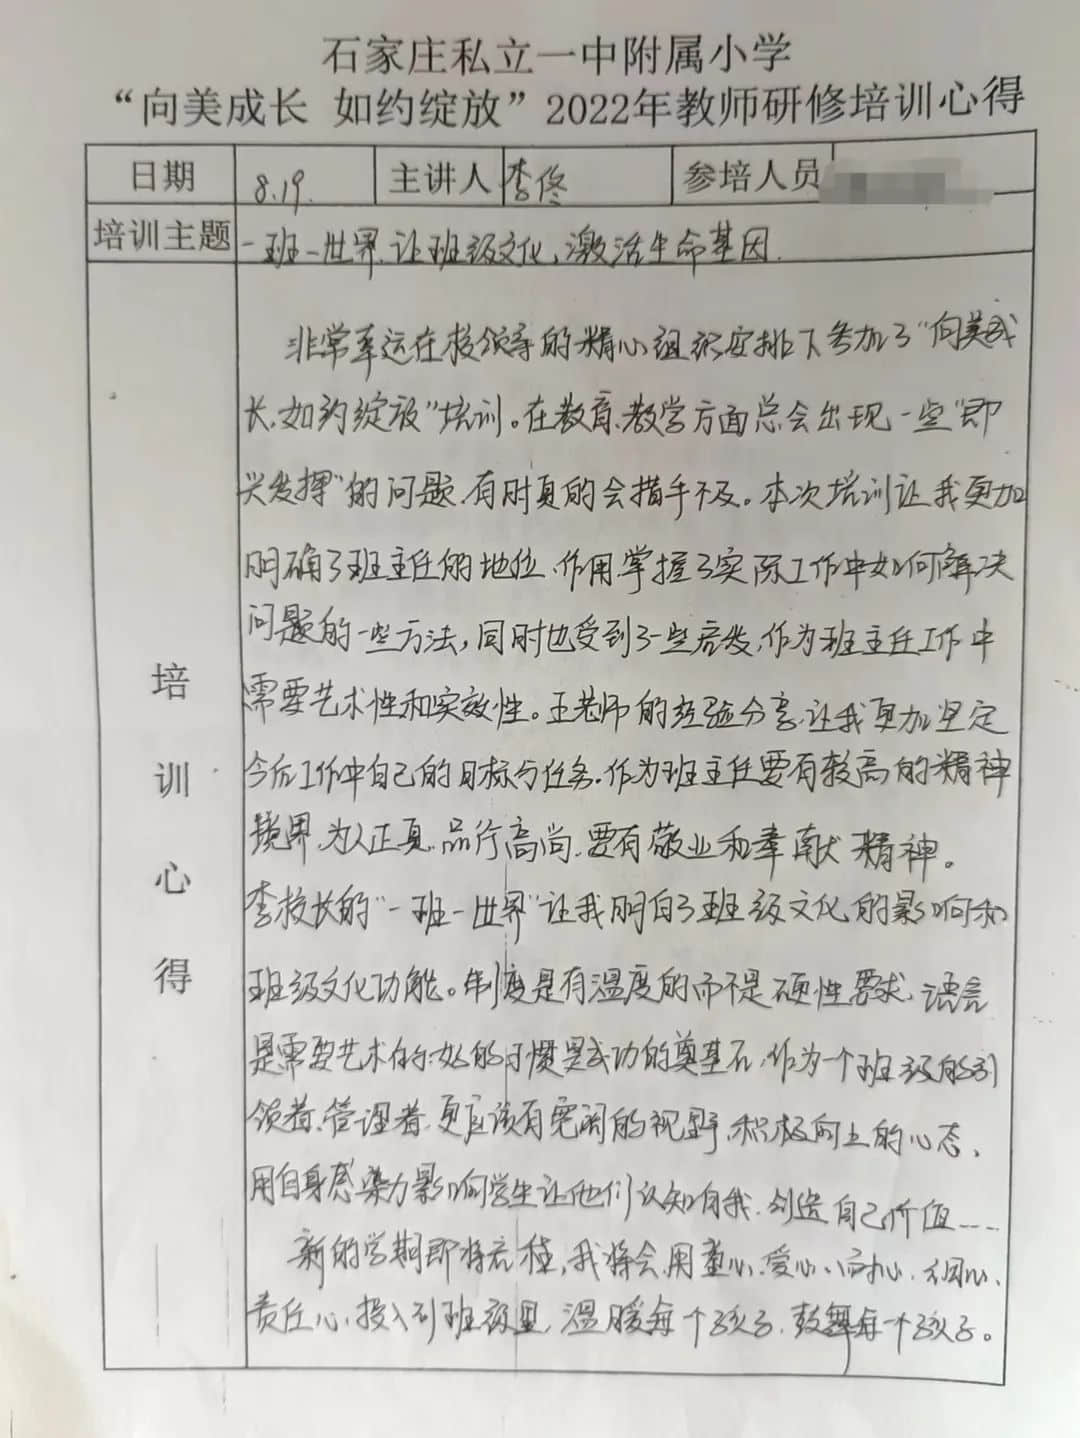 石家庄私立一中附属小学
“向美成长 如约绽放”2022年教师研修培训心得
日期 8.19. 主讲人 李佟 参培人员
培训主题 一班一世界.让班级文化,激活生命基因.
培训心得
非常幸运在校领导的精心组织安排下参加了“向美成
长,如约绽放”培训。在教育、教学方面总会出现一些“即
兴发挥”的问题,有时真的会措手不及。本次培训让我更加
明确了班主任的地位、作用,掌握了实际工作中如何解决
问题的一些方法,同时也受到了一些启发,作为班主任工作中
需要艺术性和实效性。王老师的经验分享,让我更加坚定
今后工作中自己的目标与任务.作为班主任要有较高的精神
境界,为人正真,品行高尚,要有敬业和奉献精神。
李校长的“一班一世界”让我明白了班级文化的影响和
班级文化功能。制度是有温度的而不是硬性要求,语言
是需要艺术的.好的习惯是成功的奠基石,作为一个班级的引
领者、管理者,更应该有宽阔的视野,积极向上的心态,
用自身感染力影响学生让他们认知自我,创造自己价值……
新的学期即将充植,我将会用童心、爱心、耐心、细心、
责任心,投入到班级里,温暖每个孩子,鼓舞每一个孩子。